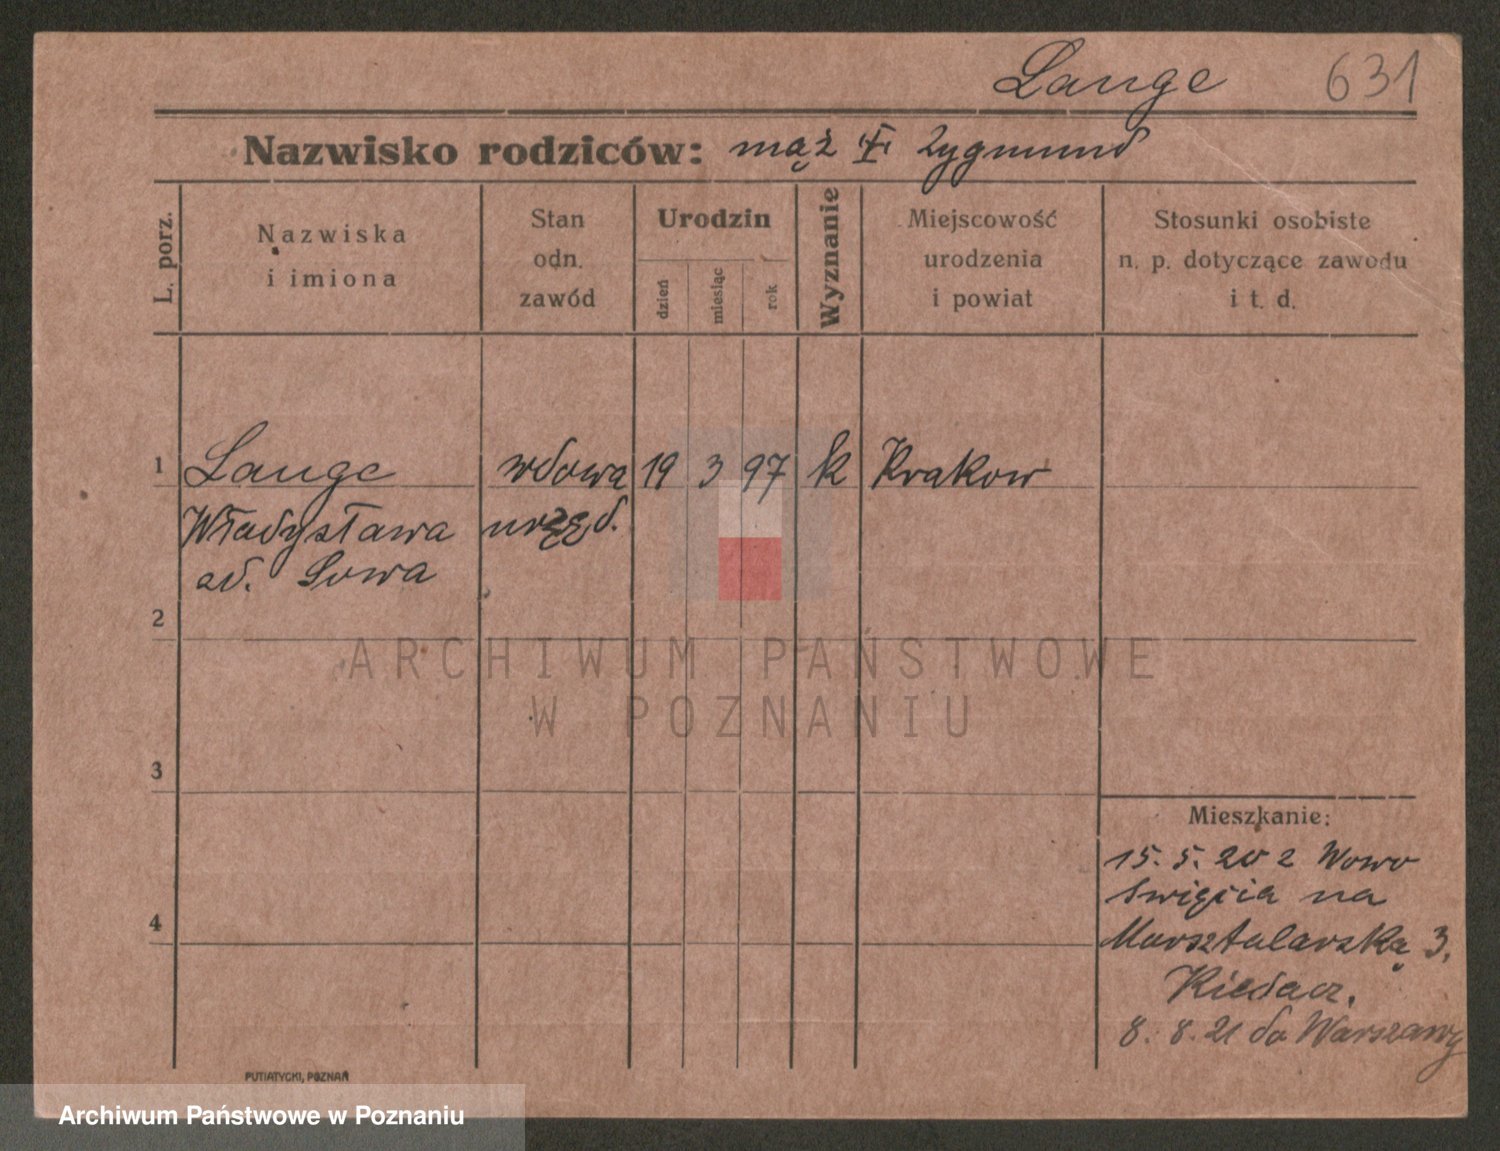 Lange 631
Nazwisko rodziców: mąż † Zygmund
L. porz.
Nazwiska
i imiona
Stan
odn.
zawód
Urodzin
dzień
miesiąc
rok
Wyznanie
Miejscowość
urodzenia
i powiat
Stosunki osobiste
n. p. dotyczące zawodu
i t. d.
1 Lange wdowa 19 3 97 k Krakow
Władysława urzęd.
zd. Sowa
2
ARCHIWUM PAŃSTWOWE
W POZNANIU
3
Mieszkanie:
15. 5. 20 z Nowo
Swięcia na
4
Marsztalarską 3.
8. 8. 21 do Warszawy
PUTIATYCKI, POZNAŃ
Archiwum Państwowe w Poznaniu